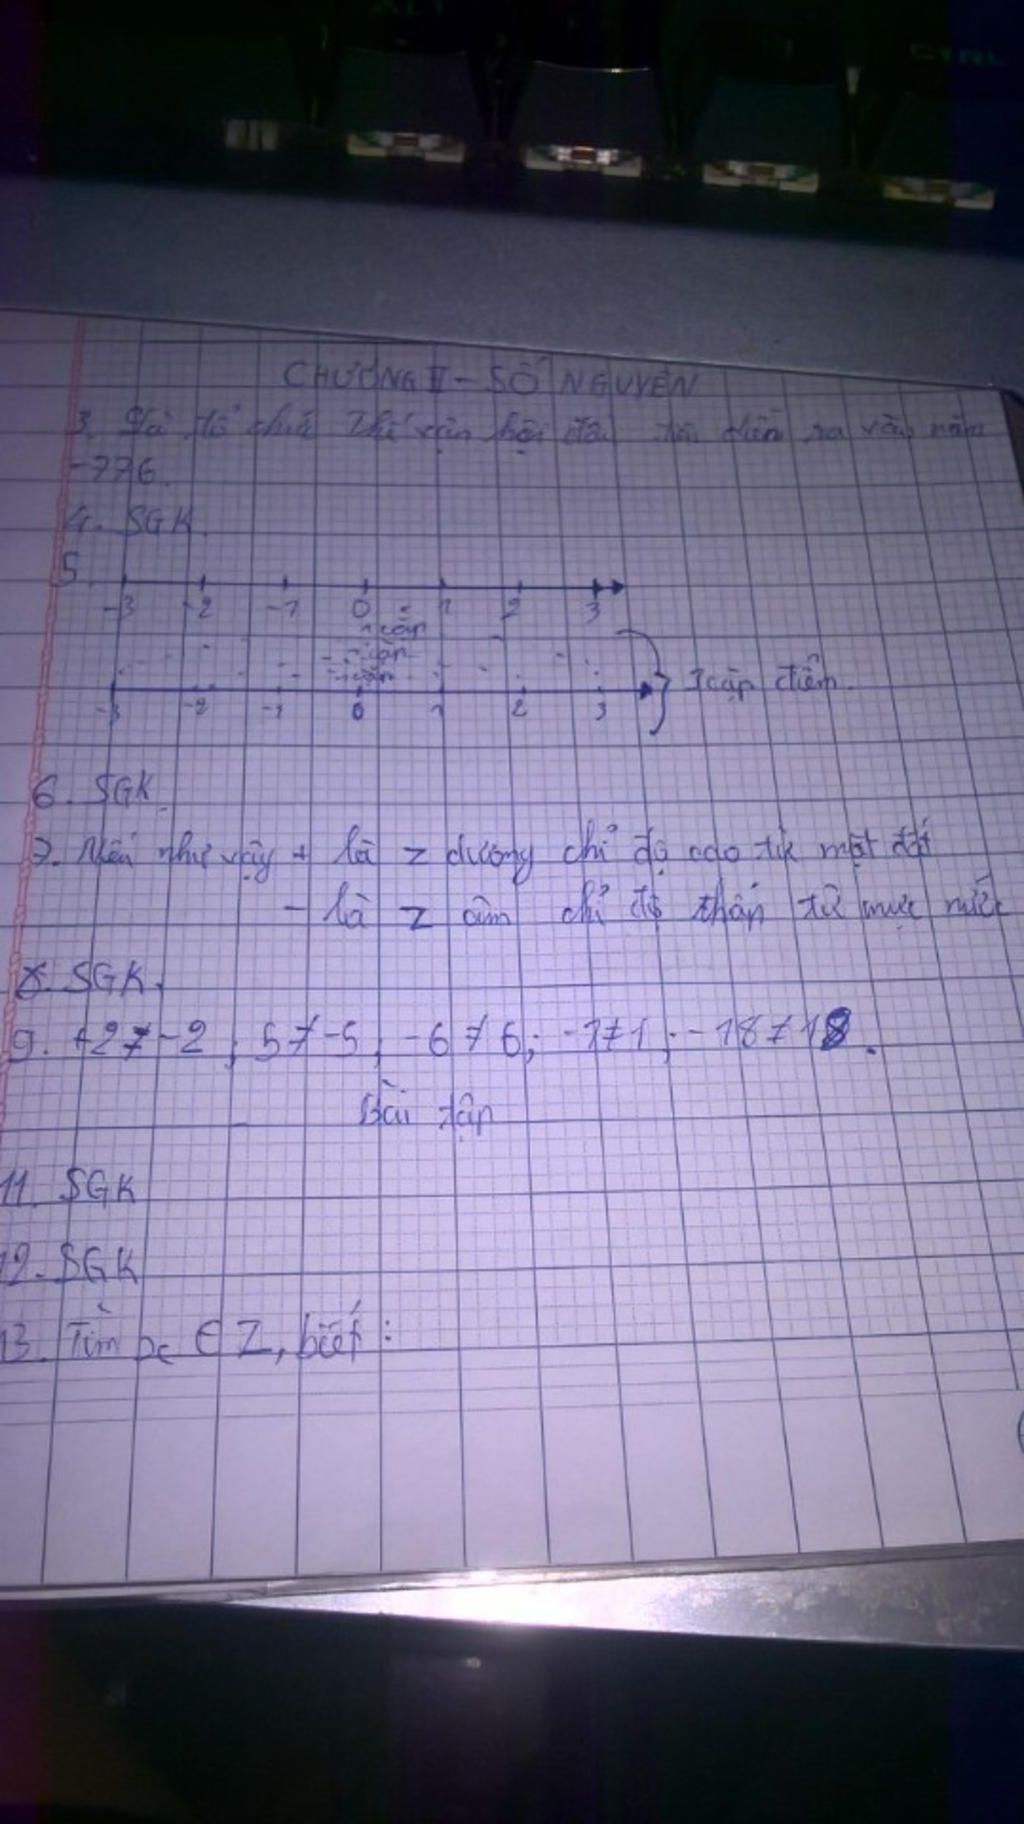 CTRL
CHƯƠNG II - SỐ NGUYÊN
3. tổ chức Thế vận hội đầu tiên diễn ra vào năm
-776.
4. SGK.
5.
-3 -2 -1 0 1 2 3
cặp
cặp
cặp
-3 -2 -1 0 1 2 3
3 cặp điểm.
6. SGK.
7. Nếu như vậy + là Z dương chỉ độ cao từ mặt đất
- là Z âm chỉ độ thấp từ mực nước
8. SGK.
9. +2 ≠ -2 ; 5 ≠ -5 ; -6 ≠ 6 ; -1 ≠ 1 ; -18 ≠ 18.
Bài tập
11. SGK
12. SGK
13. Tìm x ∈ Z, biết :